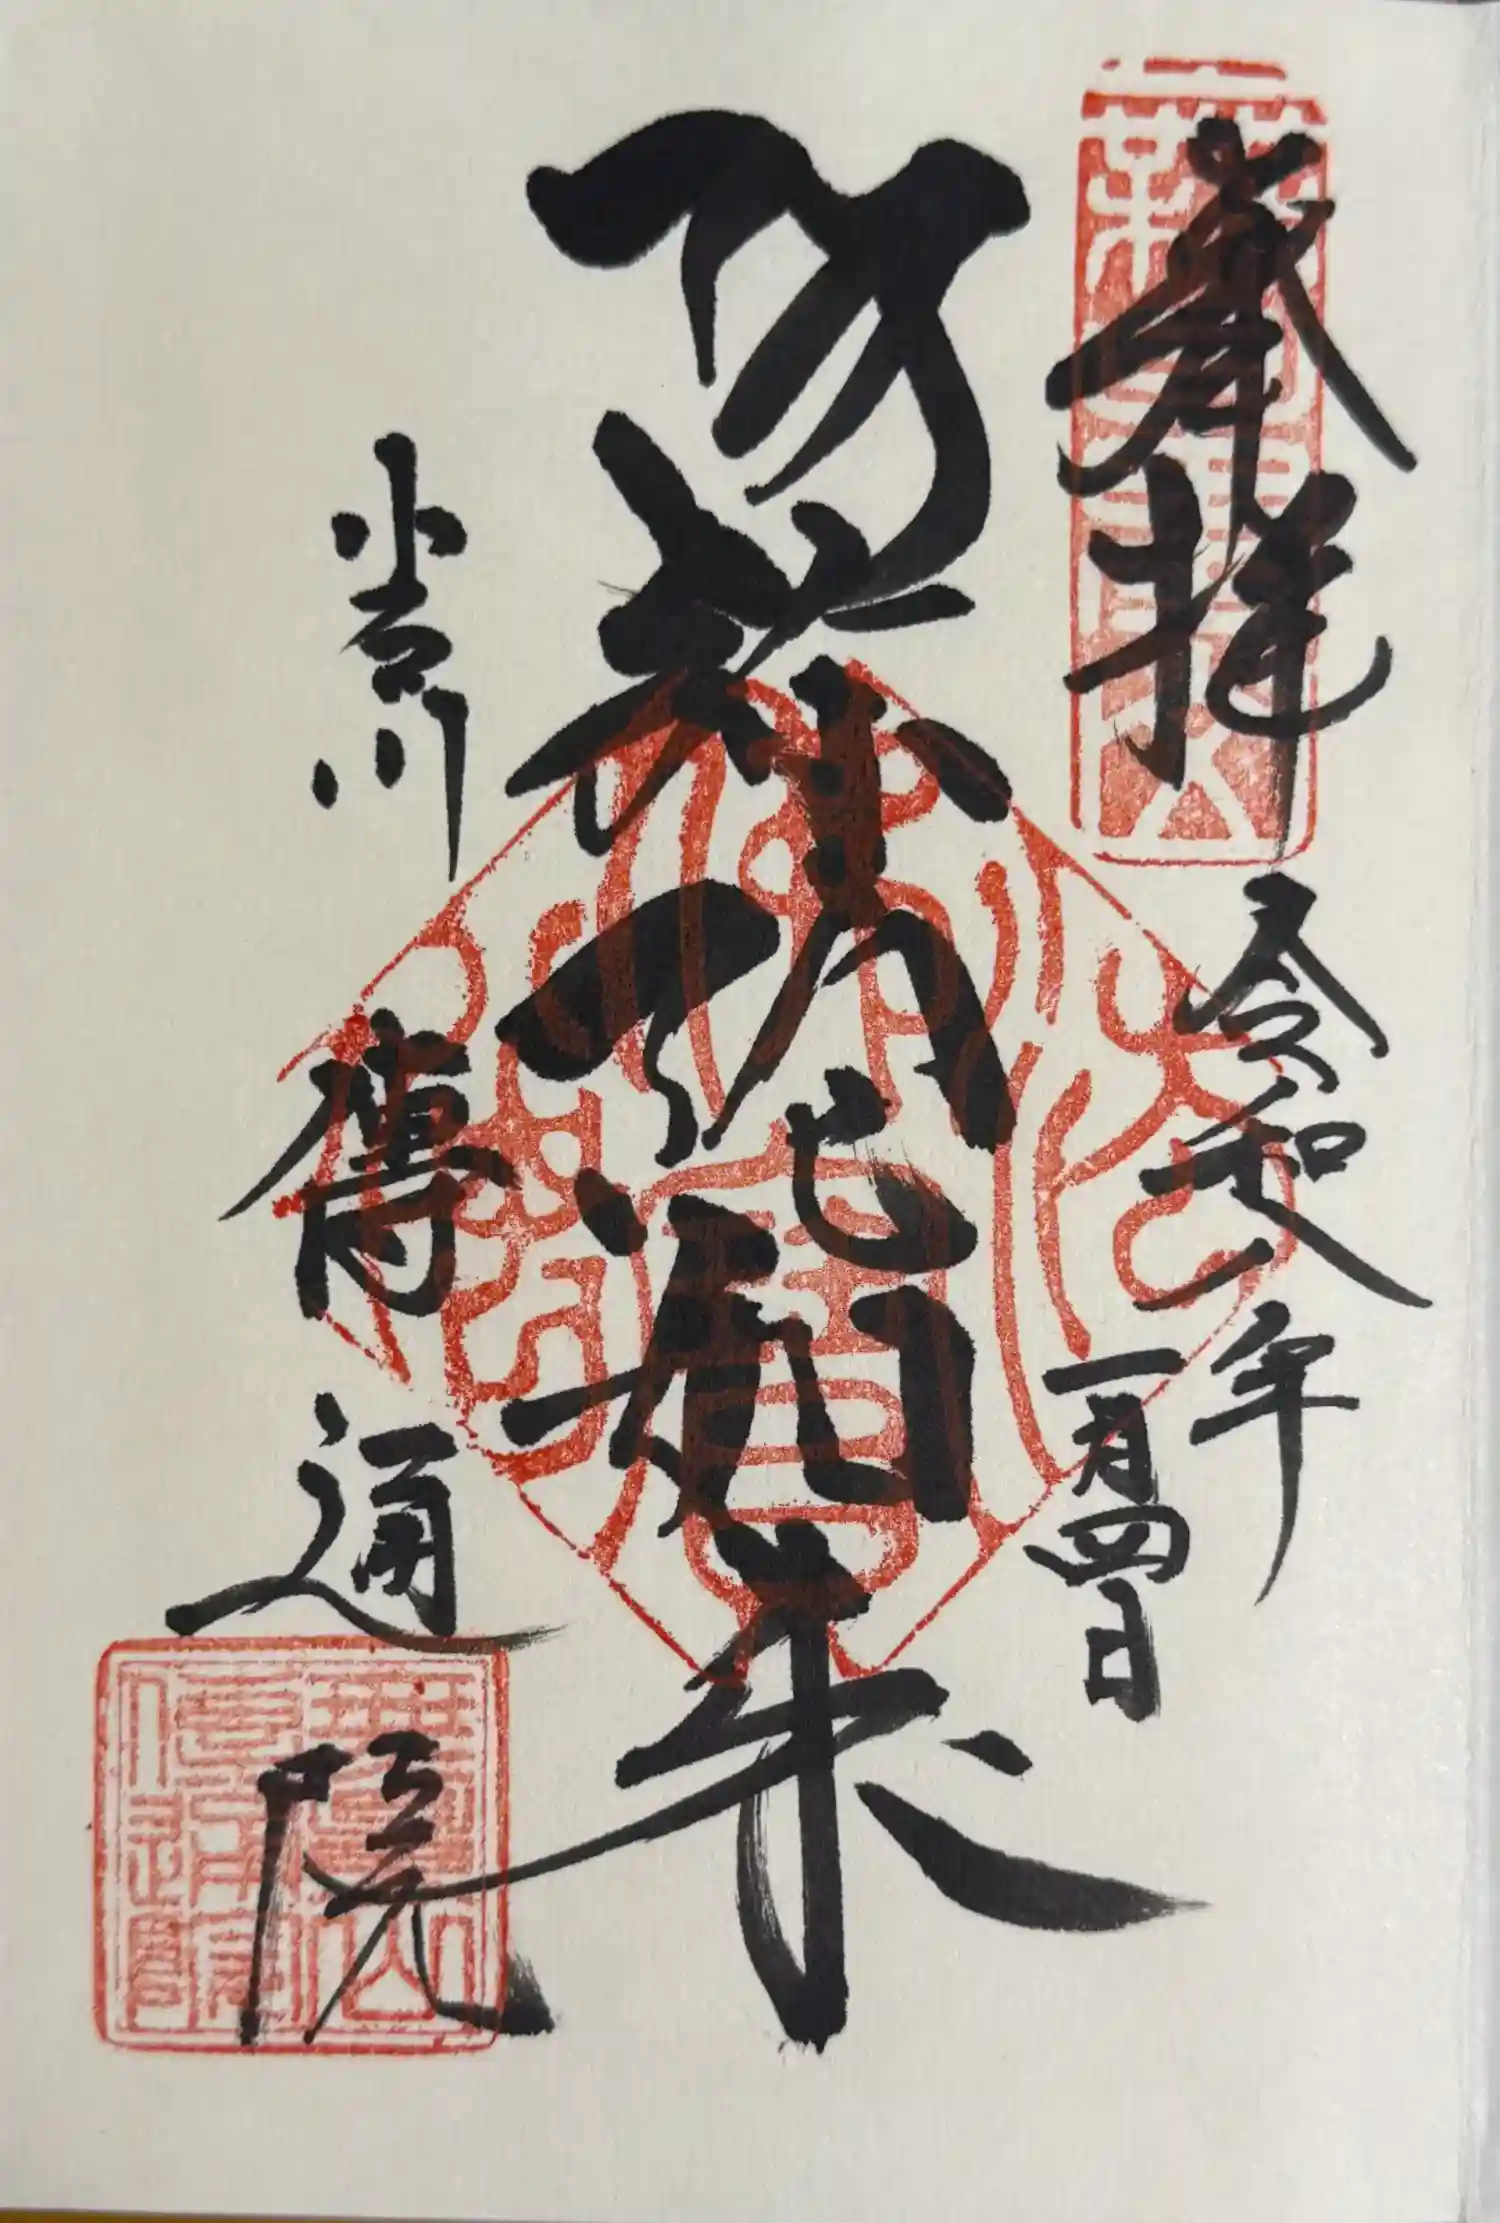 奉拝
令和八年
一月四日
阿弥陀如来
小石川
傳通院